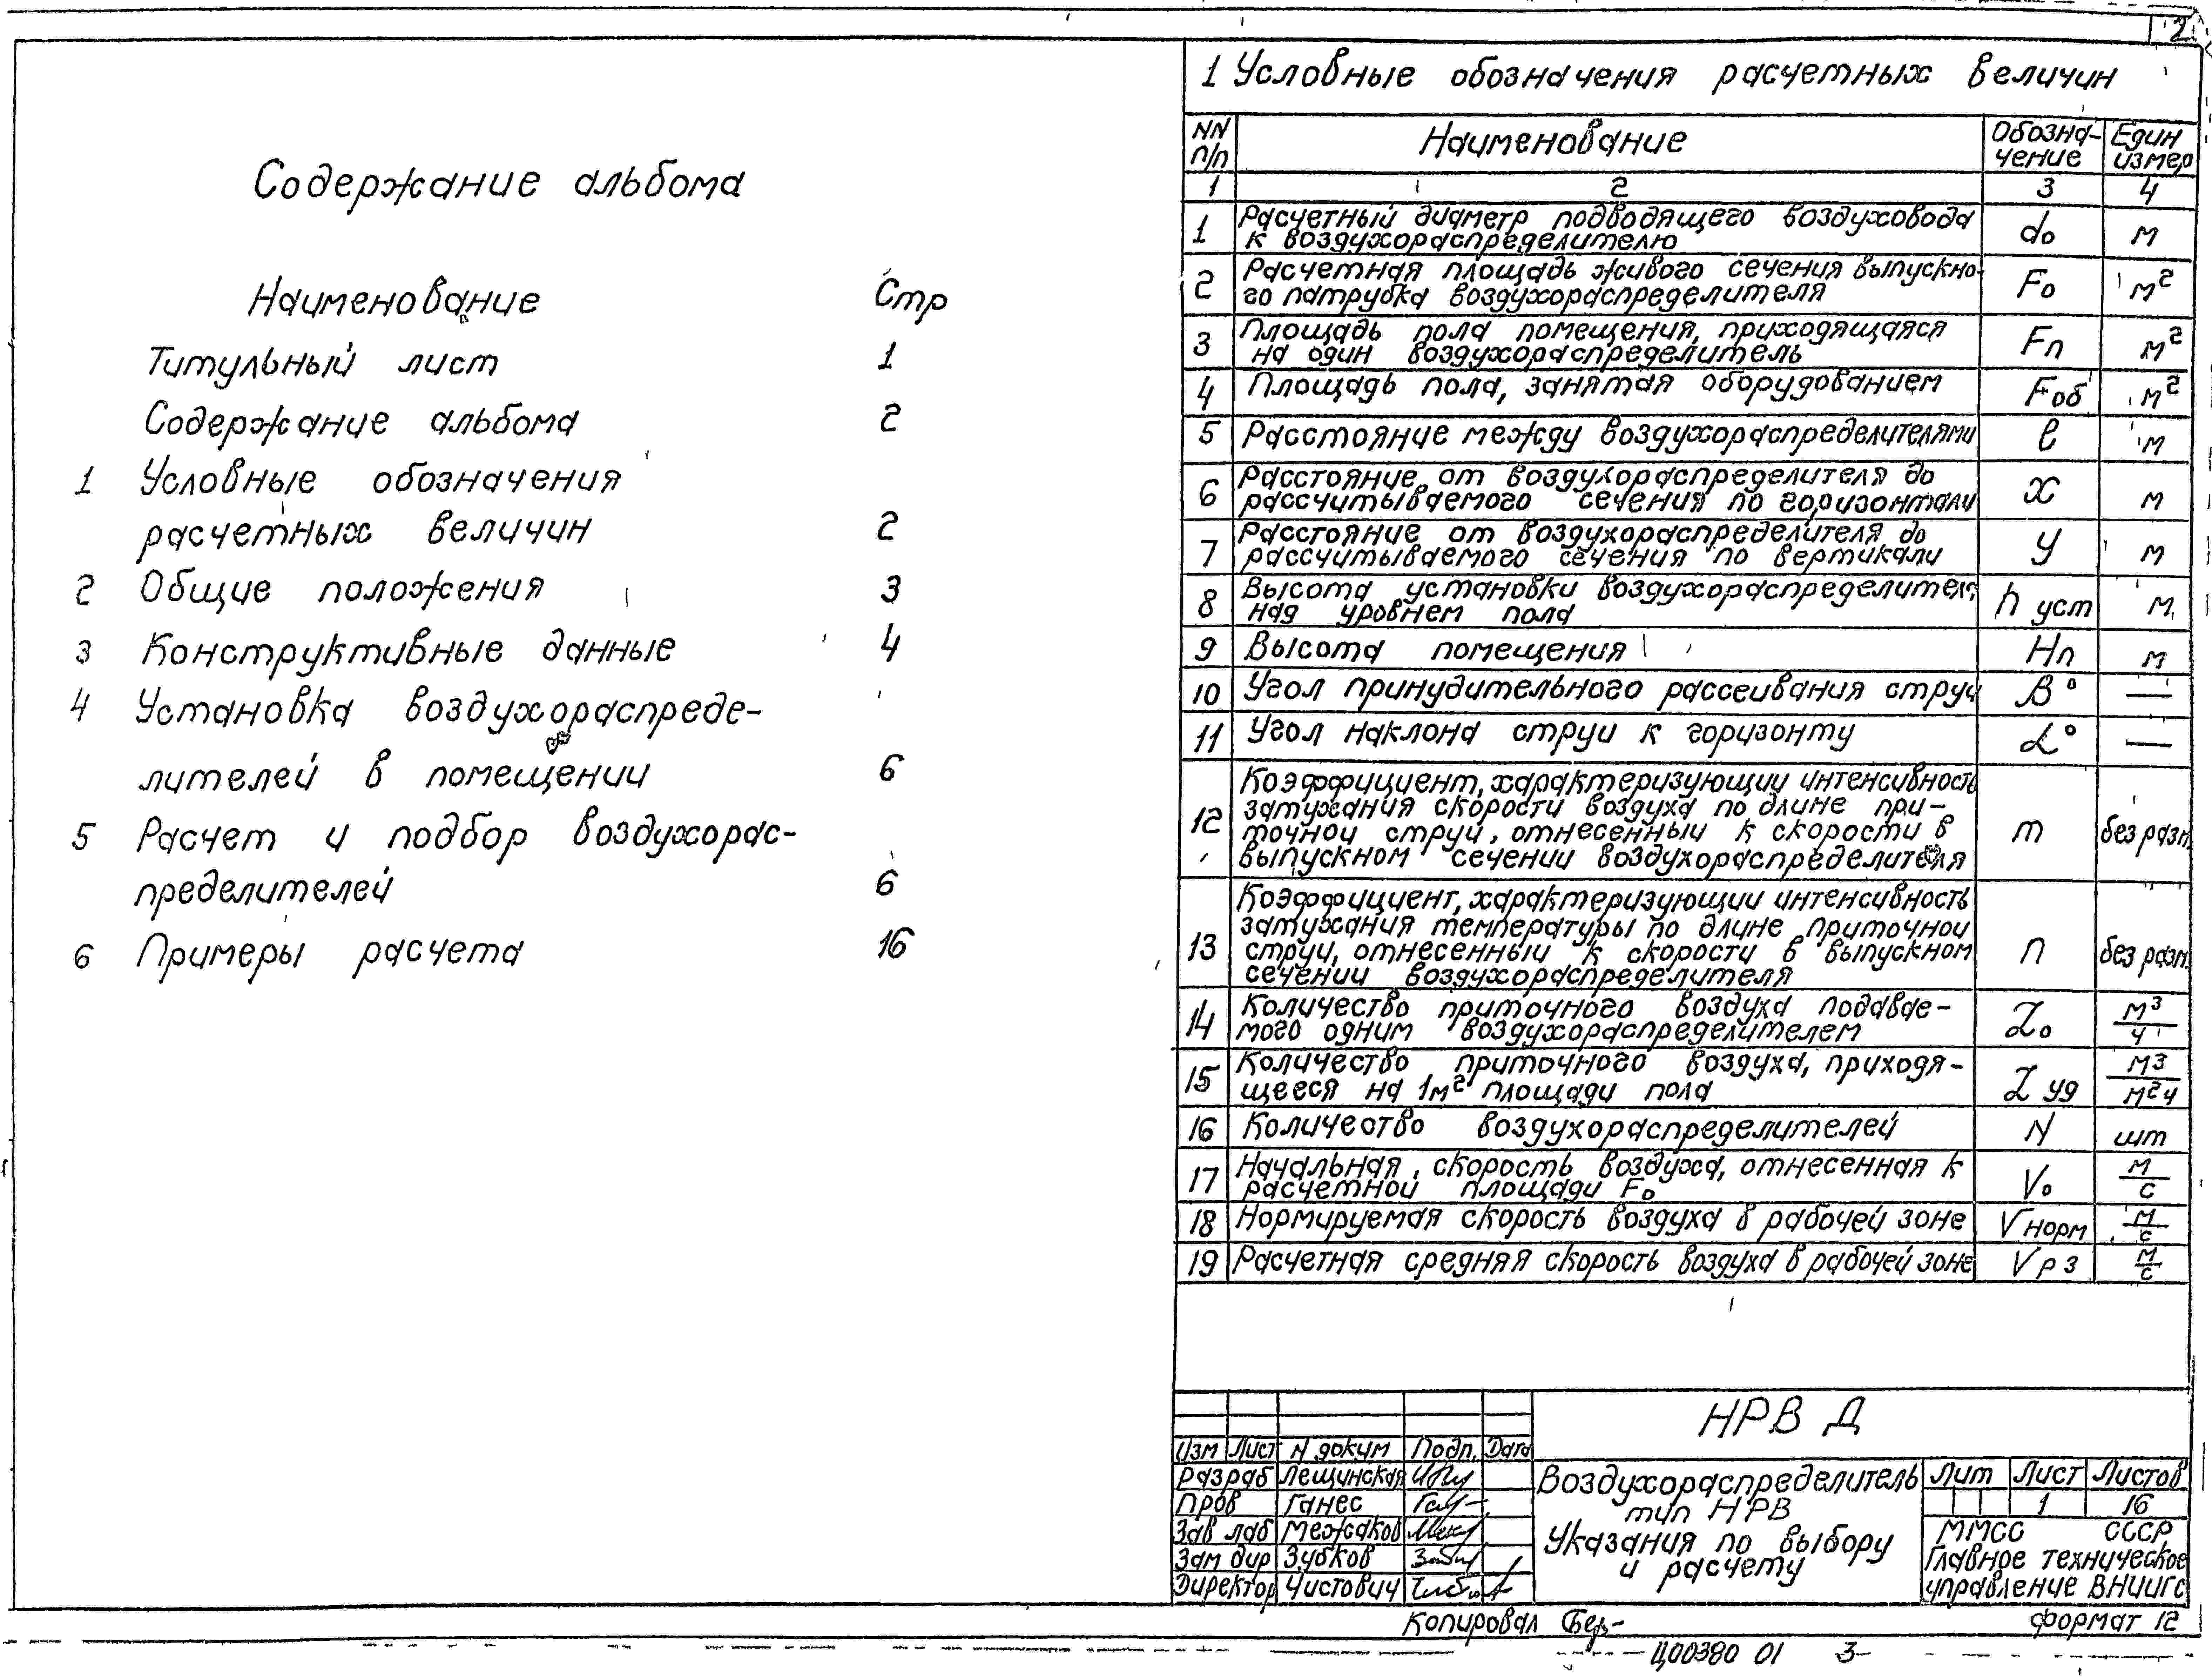 2
Содержание альбома
Наименование Стр
Титульный лист 1
Содержание альбома 2
1 Условные обозначения
расчетных величин 2
2 Общие положения 3
3 Конструктивные данные 4
4 Установка воздухораспреде-
лителей в помещении 6
5 Расчет и подбор воздухорас-
пределителей 6
6 Примеры расчета 16
1 Условные обозначения расчетных величин
NN п/п Наименование Обозна-чение Един измер
1 2 3 4
1 Расчетный диаметр подводящего воздуховода
к воздухораспределителю d₀ м
2 Расчетная площадь живого сечения выпускно-
го патрубка воздухораспределителя F₀ м²
3 Площадь пола помещения, приходящаяся
на один воздухораспределитель Fп м²
4 Площадь пола, занятая оборудованием Fоб м²
5 Расстояние между воздухораспределителями ℓ м
6 Расстояние от воздухораспределителя до
рассчитываемого сечения по горизонтали x м
7 Расстояние от воздухораспределителя до
рассчитываемого сечения по вертикали y м
8 Высота установки воздухораспределителя
над уровнем пола h уст м
9 Высота помещения Hп м
10 Угол принудительного рассеивания струи β° —
11 Угол наклона струи к горизонту α° —
12 Коэффициент, характеризующий интенсивность
затухания скорости воздуха по длине при-
точной струи, отнесенный к скорости в
выпускном сечении воздухораспределителя m без разм.
13 Коэффициент, характеризующий интенсивность
затухания температуры по длине приточной
струи, отнесенный к скорости в выпускном
сечении воздухораспределителя n без разм.
14 Количество приточного воздуха подавае-
мого одним воздухораспределителем L₀ м³/ч
15 Количество приточного воздуха, приходя-
щееся на 1м² площади пола L уд м3/м²ч
16 Количество воздухораспределителей N шт
17 Начальная скорость воздуха, отнесенная к
расчетной площади F₀ V₀ м/с
18 Нормируемая скорость воздуха в рабочей зоне Vнорм м/с
19 Расчетная средняя скорость воздуха в рабочей зоне Vрз м/с
НРВ Д
Изм Лист N докум Подп. Дата
Разраб Лещинская
Пров Ганес
Зав лаб Межаков
Зам дир Зубков
Директор Чистович
Воздухораспределитель
тип НРВ
Указания по выбору
и расчету
Лит Лист Листов
1 16
ММСС СССР
Главное техническое
управление ВНИИГС
Копировал Формат 12
Ц00380 01 3